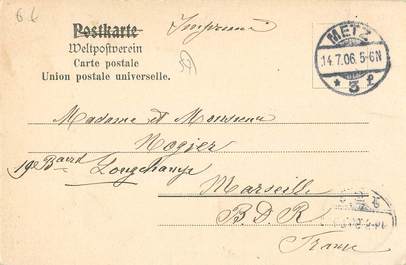 6.6
Postkarte
Imprimé
Weltpostverein
Carte postale
Union postale universelle.
METZ
14.7.06. 5-6N
* 3 f
Madame et Monsieur
Nogier
192 Bard Longchamps
Marseille
B.D.R.
France